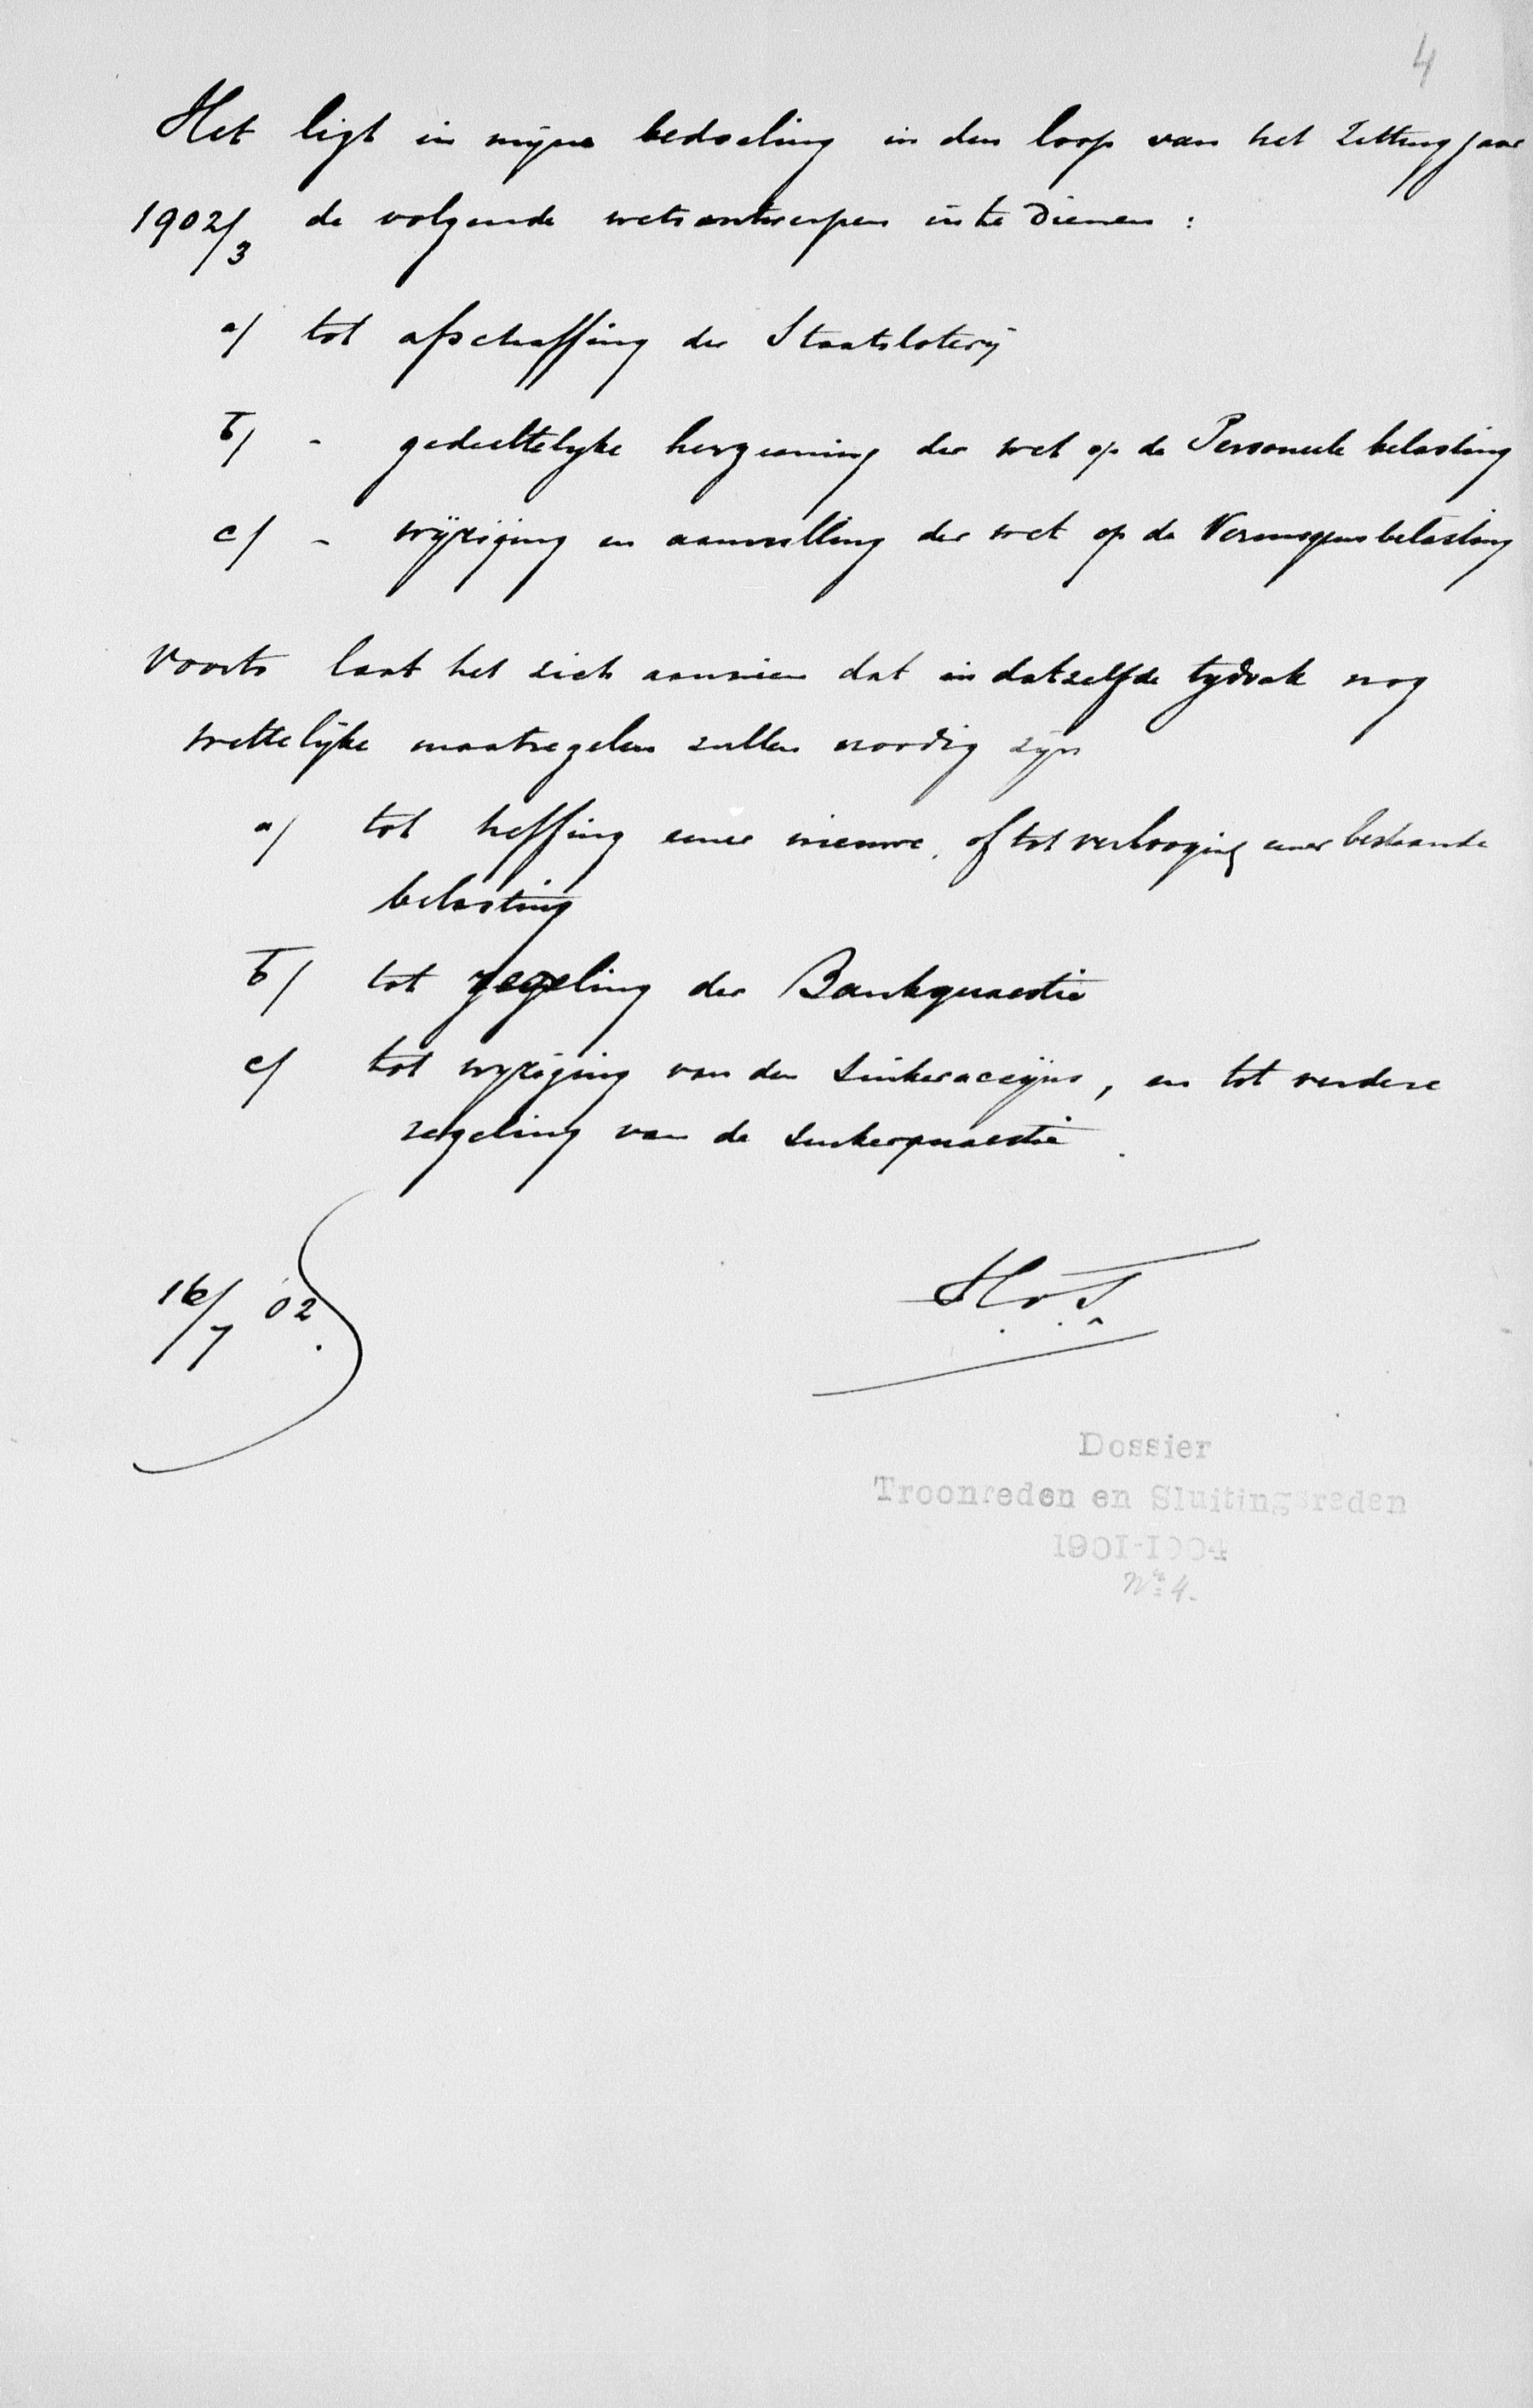 4
Het ligt in mijne bedoeling in den loop van het zittingjaar
1902/3 de volgende wetsontwerpen in te dienen :
a/ tot afschaffing der Staatsloterij
b/ - gedeeltelyke herziening der wet op de Personeele belasting
c/ - wijziging en aanvulling der wet op de Vermogensbelasting
Voorts laat het zich aanzien dat in datzelfde tydvak nog
wettelijke maatregelen zullen noodig zijn
a/ tot heffing eener nieuwe, of tot verhooging eener bestaande
belasting
b/ tot regeling der Bankquaestie
c/ tot wyziging van den Suikeraccijns, en tot verdere
regeling van de suikerquaestie.
16/7 02.
H. v. S.
Dossier
Troonreden en Sluitingsreden
1901-1904
No 4.